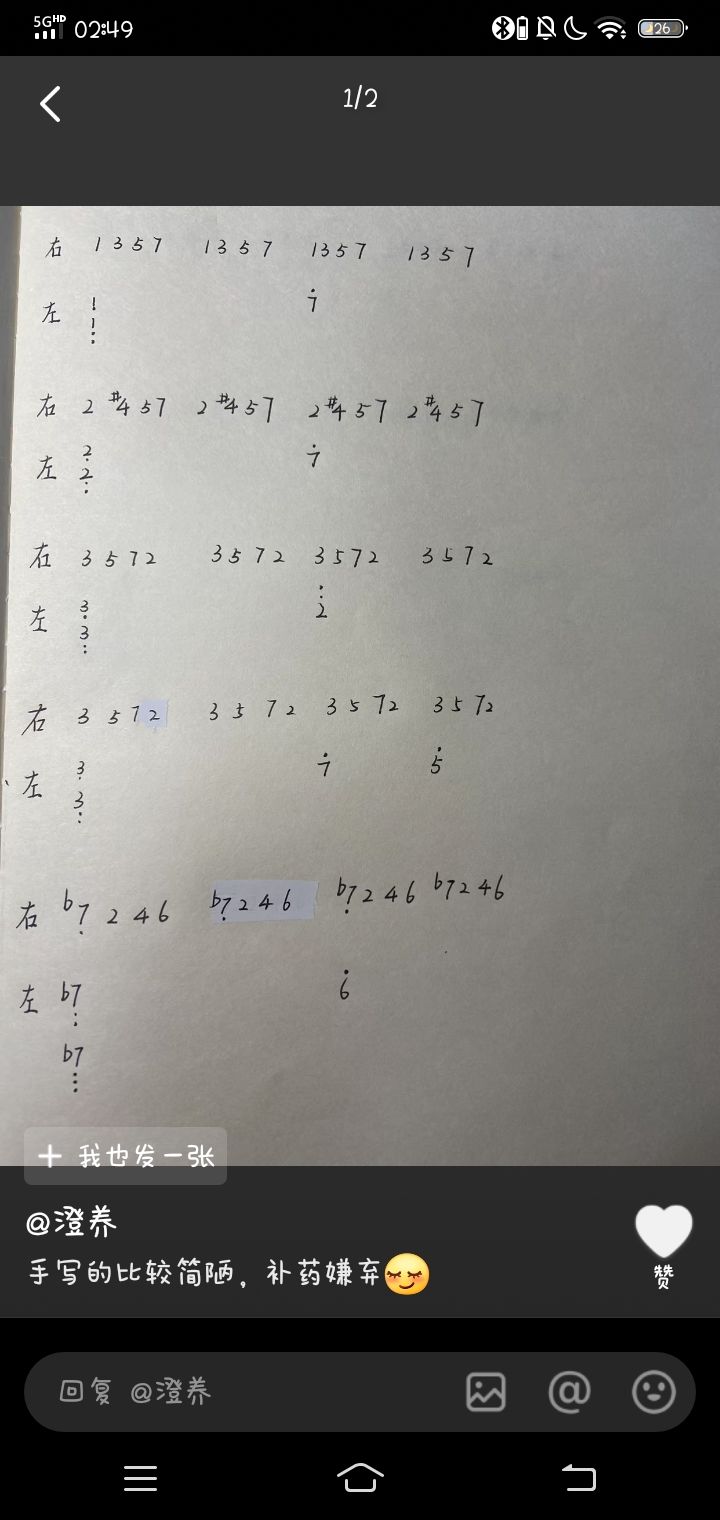 5G HD 02:49 26
1/2
右 1 3 5 7 1 3 5 7 1 3 5 7 1 3 5 7
左 1̣ 7̇
1̤
右 2 #4 5 7 2 #4 5 7 2 #4 5 7 2 #4 5 7
左 2̣ 7̇
2̤
右 3 5 7 2 3 5 7 2 3 5 7 2 3 5 7 2
左 3̣ 2̈
3̤
右 3 5 7 2 3 5 7 2 3 5 7 2 3 5 7 2
左 3̣ 7̇ 5̇
3̤
右 b7̣ 2 4 6 b7̣ 2 4 6 b7̣ 2 4 6 b7 2 4 6
左 b7̤ 6̇
b7⋮
+ 我也发一张
@澄养
手写的比较简陋，补药嫌弃
赞
回复 @澄养